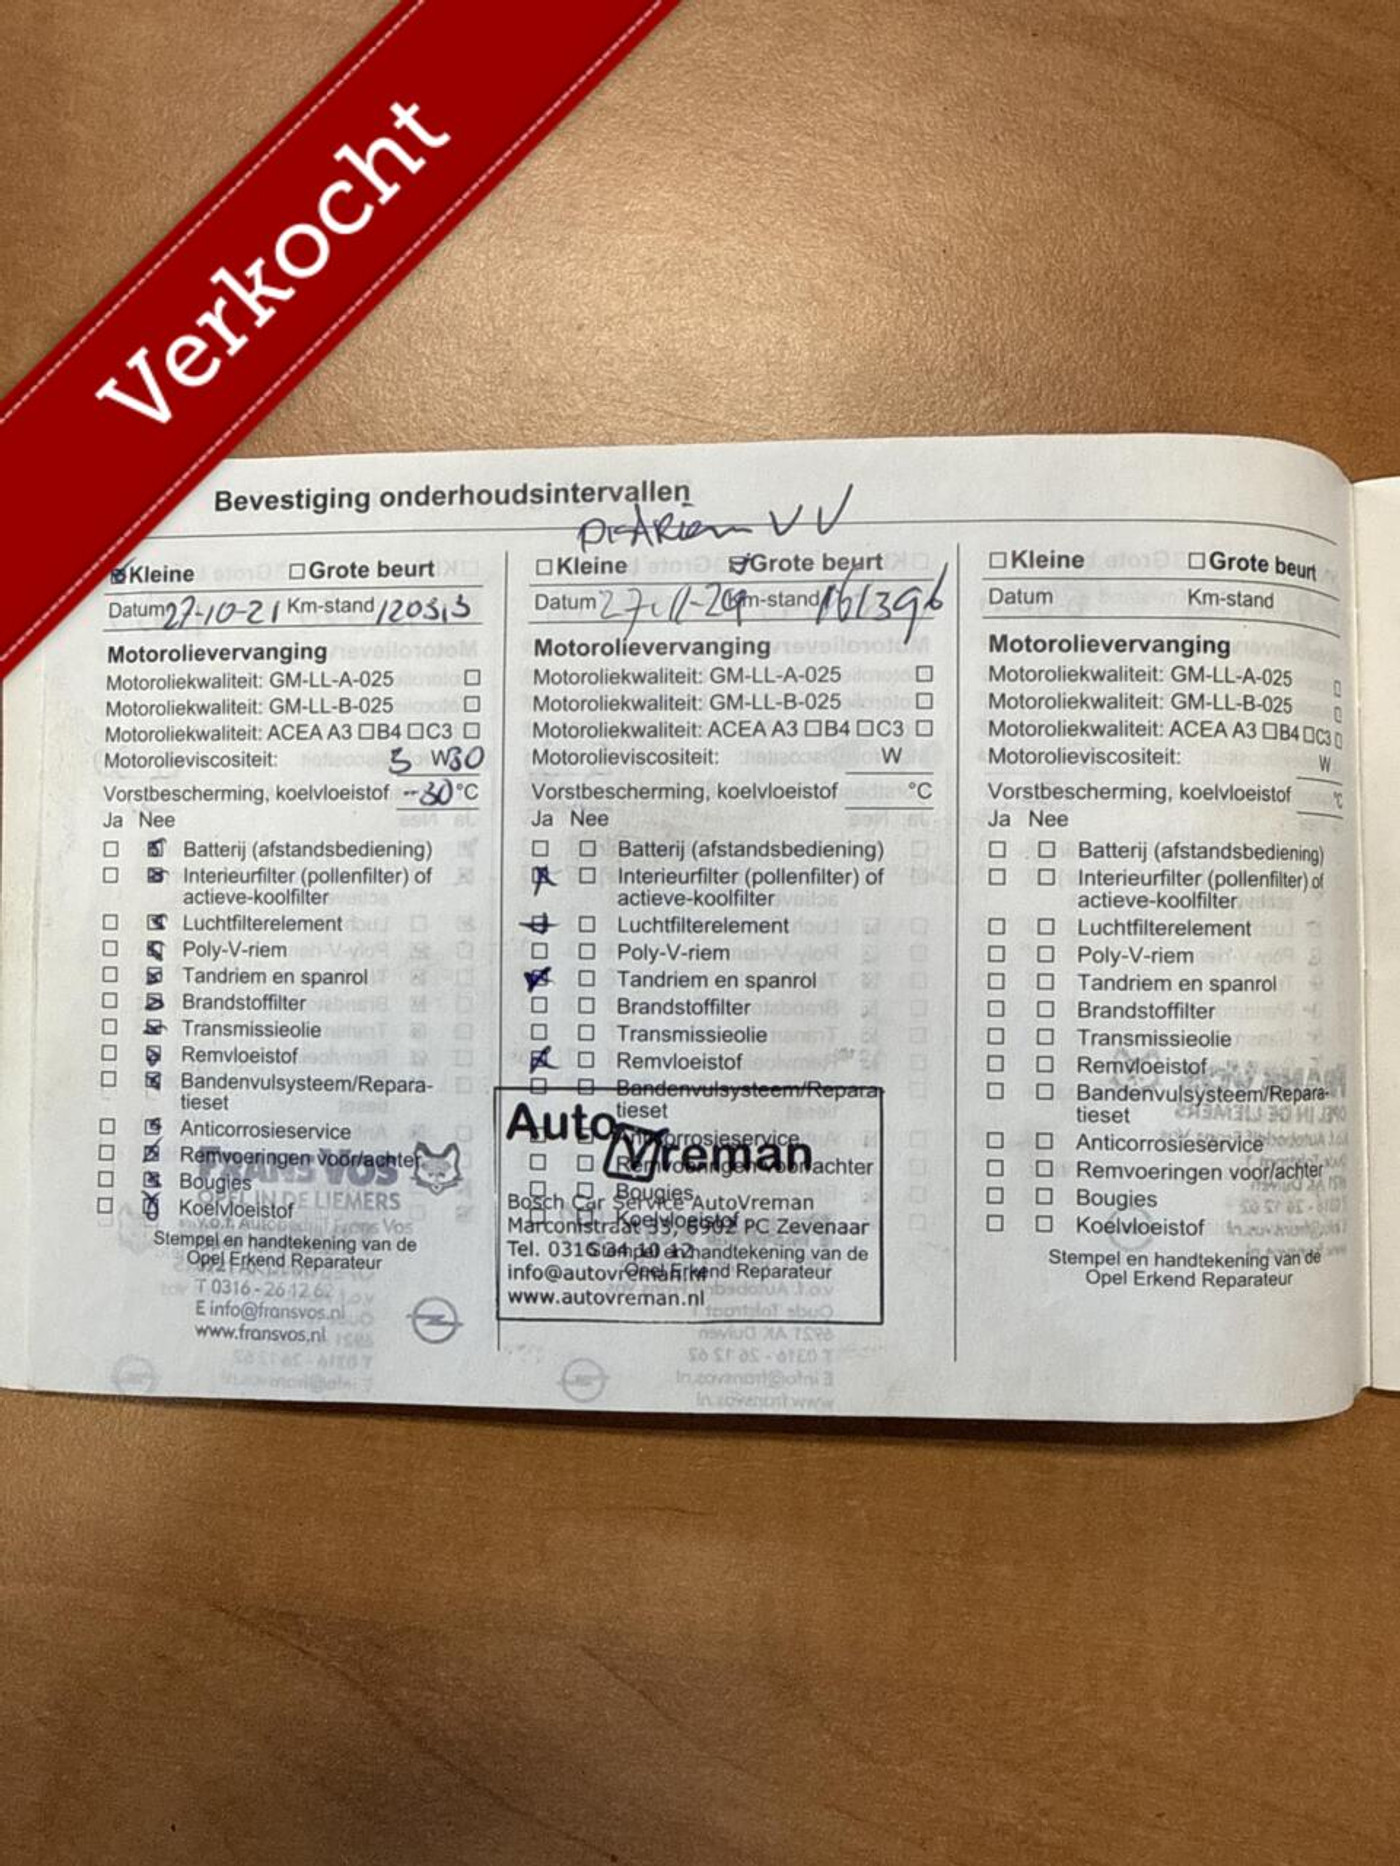 Verkocht
Bevestiging onderhoudsintervallen
VV
Kleine Grote beurt
Datum 27-10-21 Km-stand 120313
Motorolievervanging
Motoroliekwaliteit: GM-LL-A-025
Motoroliekwaliteit: GM-LL-B-025
Motoroliekwaliteit: ACEA A3 B4 C3
Motorolieviscositeit: 5 W30
Vorstbescherming, koelvloeistof -30 °C
Ja Nee
Batterij (afstandsbediening)
Interieurfilter (pollenfilter) of
actieve-koolfilter
Luchtfilterelement
Poly-V-riem
Tandriem en spanrol
Brandstoffilter
Transmissieolie
Remvloeistof
Bandenvulsysteem/Repara-
tieset
Anticorrosieservice
Remvoeringen voor/achter
Bougies
Koelvloeistof
Stempel en handtekening van de
Opel Erkend Reparateur
FRANS VOS
OPEL IN DE LIEMERS
v.o.f. Autobedrijf Frans Vos
T 0316 - 26 12 62
E info@fransvos.nl
www.fransvos.nl
Kleine Grote beurt
Datum Km-stand 161396
Motorolievervanging
Motoroliekwaliteit: GM-LL-A-025
Motoroliekwaliteit: GM-LL-B-025
Motoroliekwaliteit: ACEA A3 B4 C3
Motorolieviscositeit: W
Vorstbescherming, koelvloeistof °C
Ja Nee
Batterij (afstandsbediening)
Interieurfilter (pollenfilter) of
actieve-koolfilter
Luchtfilterelement
Poly-V-riem
Tandriem en spanrol
Brandstoffilter
Transmissieolie
Remvloeistof
Bandenvulsysteem/Repara-
tieset
Anticorrosieservice
Remvoeringen voor/achter
Bougies
Koelvloeistof
Stempel en handtekening van de
Opel Erkend Reparateur
Auto Vreman
Bosch Car Service AutoVreman
Marconistraat 33, 6902 PC Zevenaar
Tel. 0316 34 10 12
info@autovreman.nl
www.autovreman.nl
Kleine Grote beurt
Datum Km-stand
Motorolievervanging
Motoroliekwaliteit: GM-LL-A-025
Motoroliekwaliteit: GM-LL-B-025
Motoroliekwaliteit: ACEA A3 B4 C3
Motorolieviscositeit: W
Vorstbescherming, koelvloeistof °C
Ja Nee
Batterij (afstandsbediening)
Interieurfilter (pollenfilter) of
actieve-koolfilter
Luchtfilterelement
Poly-V-riem
Tandriem en spanrol
Brandstoffilter
Transmissieolie
Remvloeistof
Bandenvulsysteem/Repara-
tieset
Anticorrosieservice
Remvoeringen voor/achter
Bougies
Koelvloeistof
Stempel en handtekening van de
Opel Erkend Reparateur